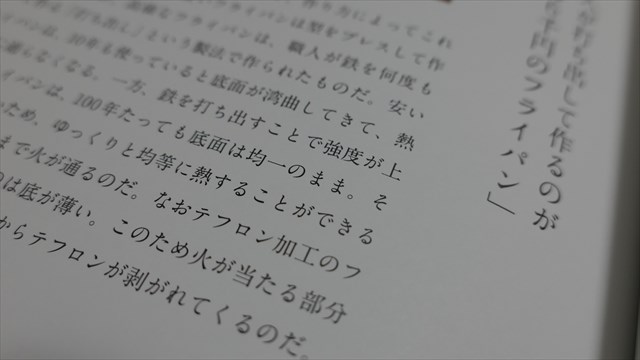 して作るのが
円のフライパン」
作り方によってこれ
フライパンは型をプレスして作
フライパンは、職人が鉄を何度も
打ち出し」という製法で作られたものだ。安い
パンは、10年も使っていると底面が湾曲してきて、熱
らなくなる。一方、鉄を打ち出すことで強度が上
イパンは、100年たっても底面は均一のまま。そ
ため、ゆっくりと均等に熱することができる
まで火が通るのだ。なおテフロン加工のフ
は底が薄い。このため火が当たる部分
からテフロンが剥がれてくるのだ。